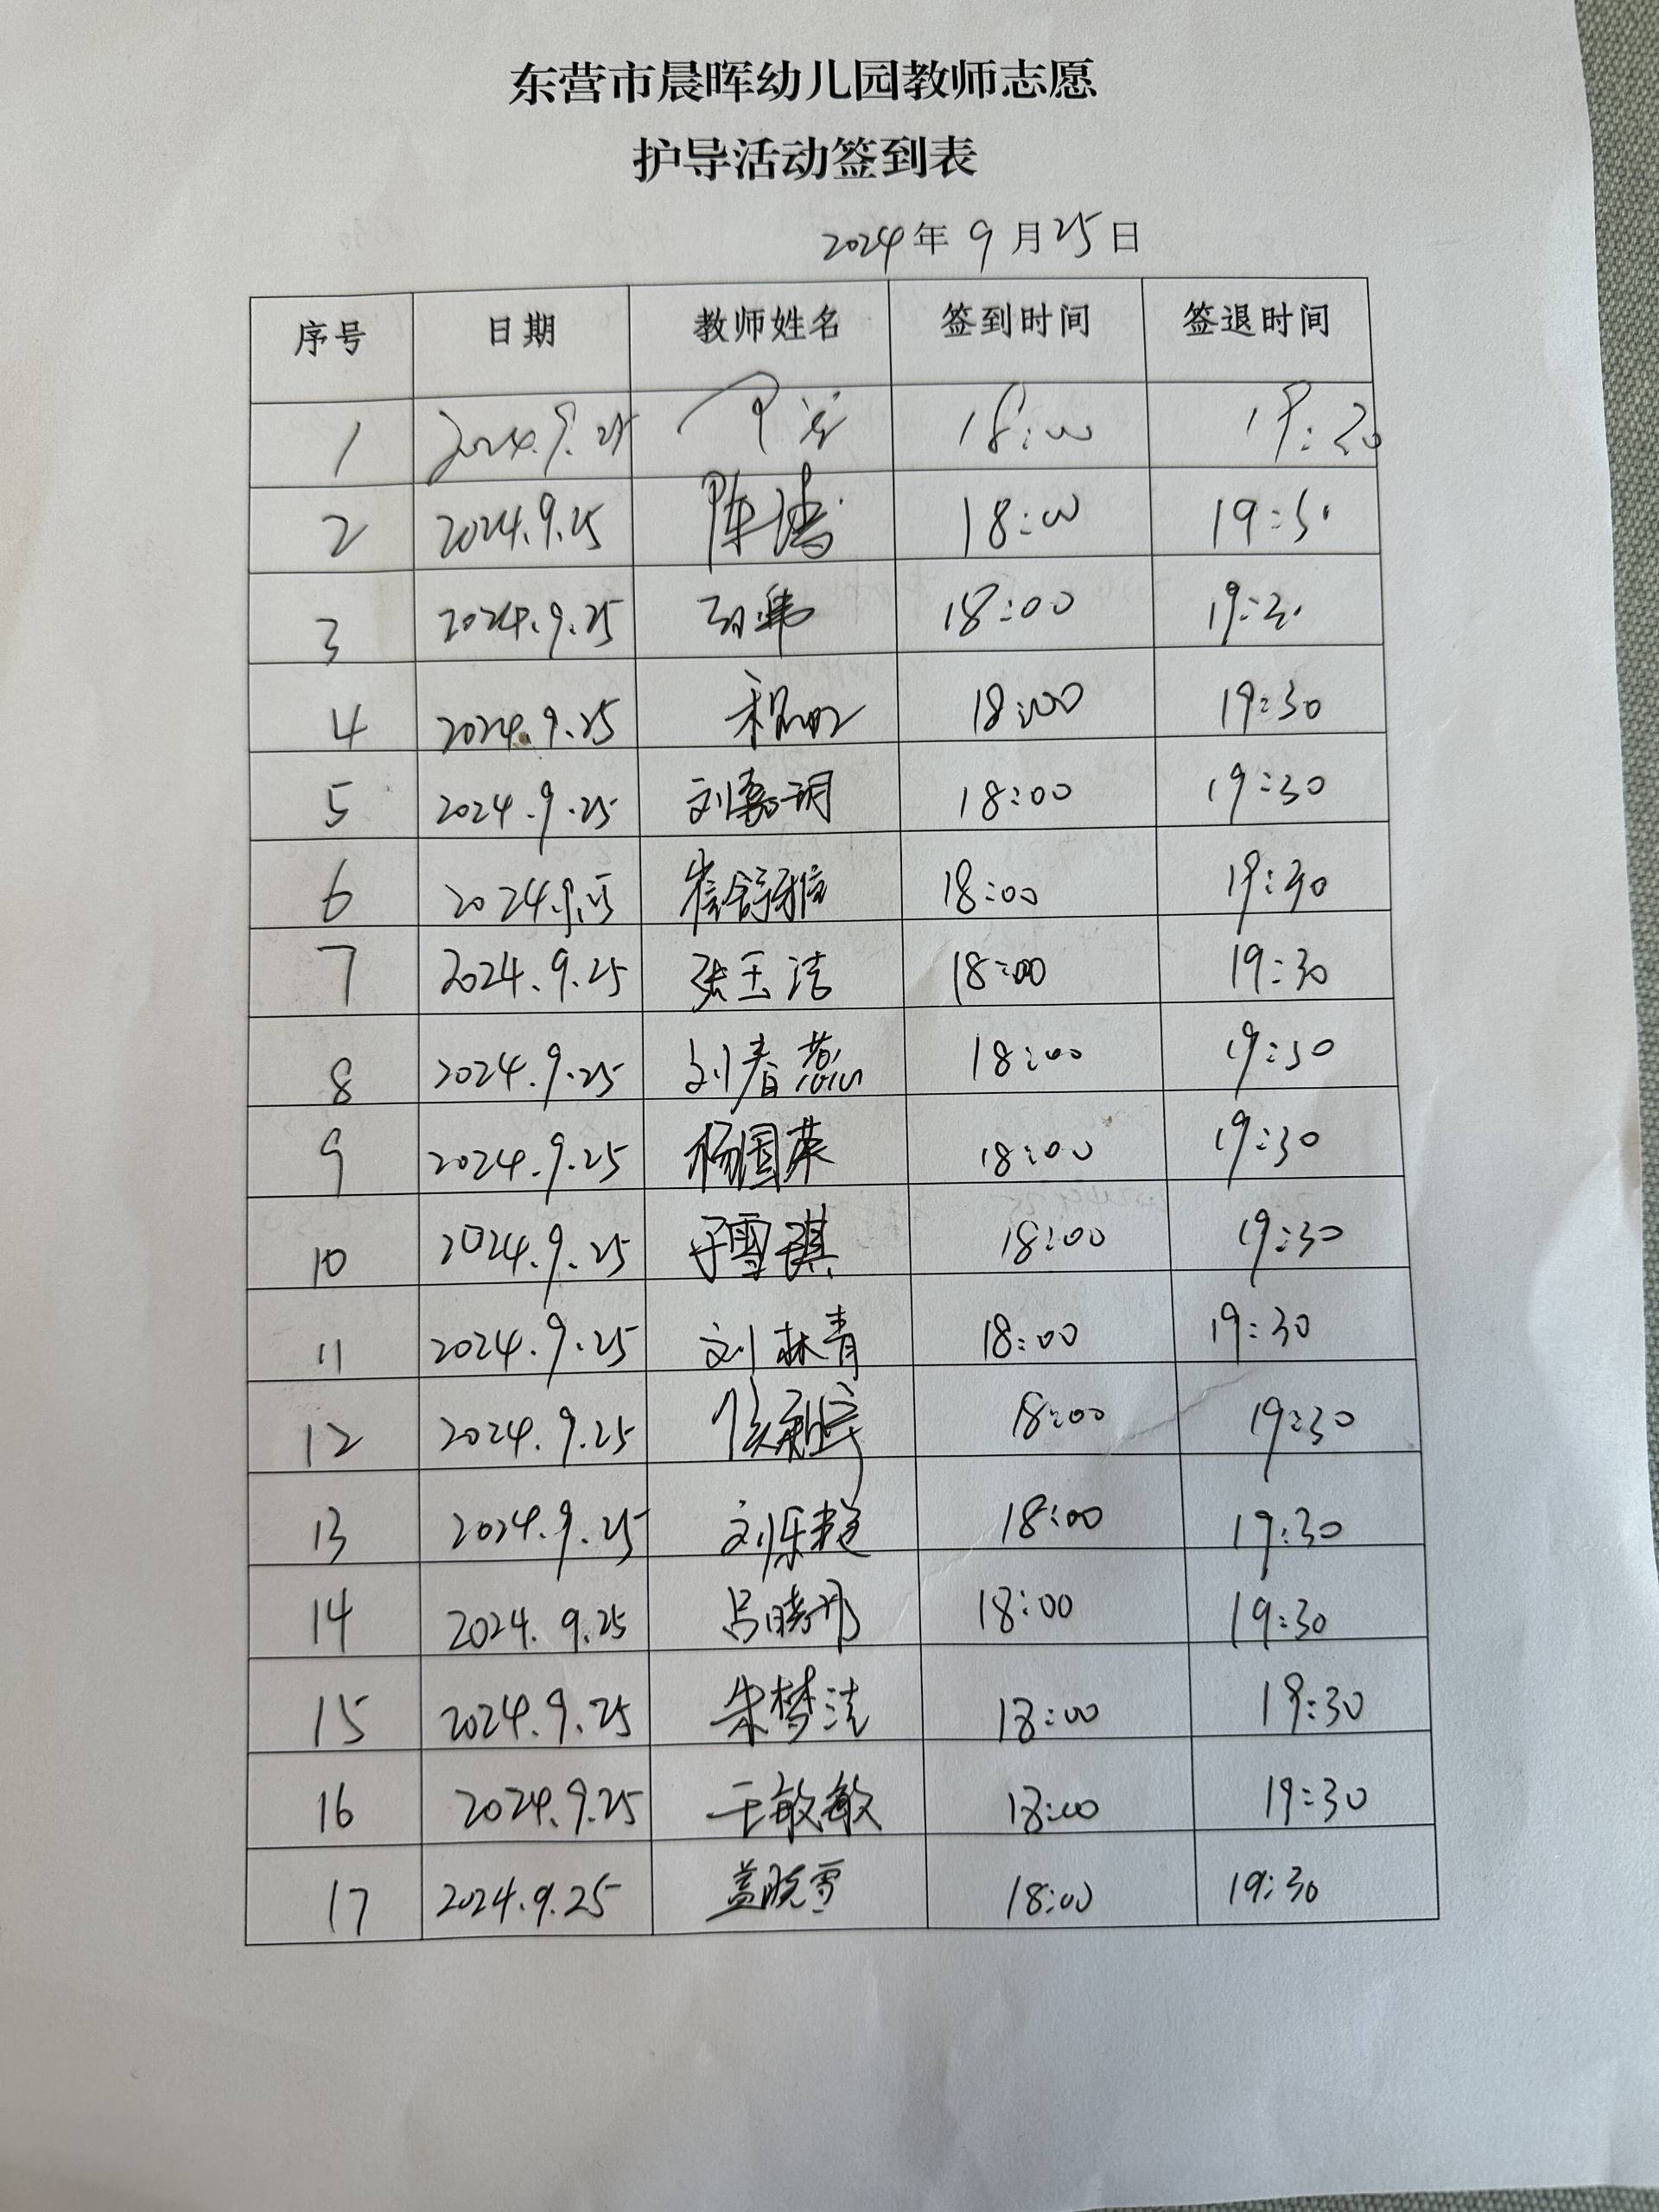 东营市晨晖幼儿园教师志愿
护导活动签到表
2024年 9月25日
序号 日期 教师姓名 签到时间 签退时间
1 2024.9.25 18:00
2 2024.9.25 18:00 19:30
3 2024.9.25 18:00 19:30
4 2024.9.25 18:00 19:30
5 2024.9.25 刘嘉玥 18:00 19:30
6 2024.9.25 崔舒雅 18:00 19:30
7 2024.9.25 张玉洁 18:00 19:30
8 2024.9.25 刘春燕 18:00 19:30
9 2024.9.25 杨国荣 18:00 19:30
10 2024.9.25 于雪琪 18:00 19:30
11 2024.9.25 刘林青 18:00 19:30
12 2024.9.25 18:00 19:30
13 2024.9.25 18:00 19:30
14 2024.9.25 吕晓彤 18:00 19:30
15 2024.9.25 朱梦洁 18:00 19:30
16 2024.9.25 王敏敏 18:00 19:30
17 2024.9.25 盖晓雪 18:00 19:30